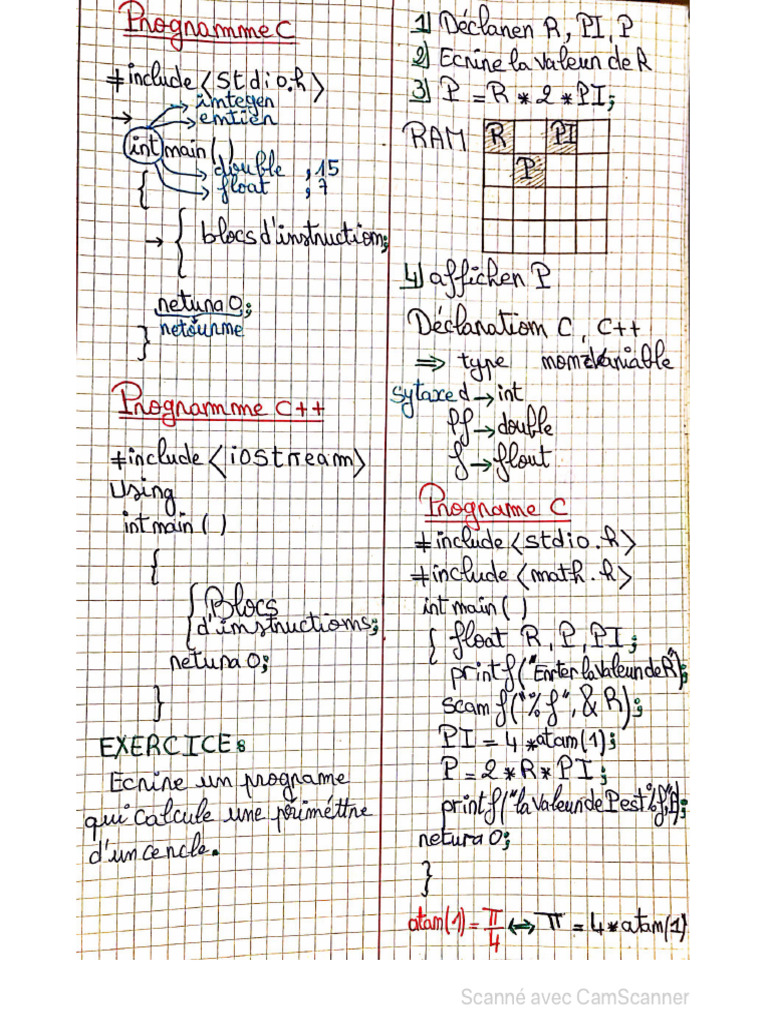 Programme C
#include <stdio.h>
→ integer
→ entier
int main()
→ double , 15
→ float , 7
{
→ { blocs d'instruction;
return 0;
retourne
}
Programme C++
#include <iostream>
Using
int main ()
{
{ Blocs
d'instructions;
return 0;
}
EXERCICE:
Ecrire un programe
qui calcule une périméttre
d'un cercle.
1) Déclarer R, PI, P
2) Ecrire la valeur de R
3) P = R * 2 * PI;
RAM R PI
P
4) afficher P
Déclaration C, C++
⇒ type nomvariable
sytaxe d → int
lf → double
f → flout
Programe C
#include <stdio.h>
#include <math.h>
int main()
{ float R, P, PI;
printf("Enter la valeur de R");
scanf("%f", &R);
PI = 4 * atan(1);
P = 2 * R * PI;
printf("la valeur de P est %f", P);
return 0;
}
atan(1) = π/4 ↔ π = 4 * atan(1)
Scanné avec CamScanner